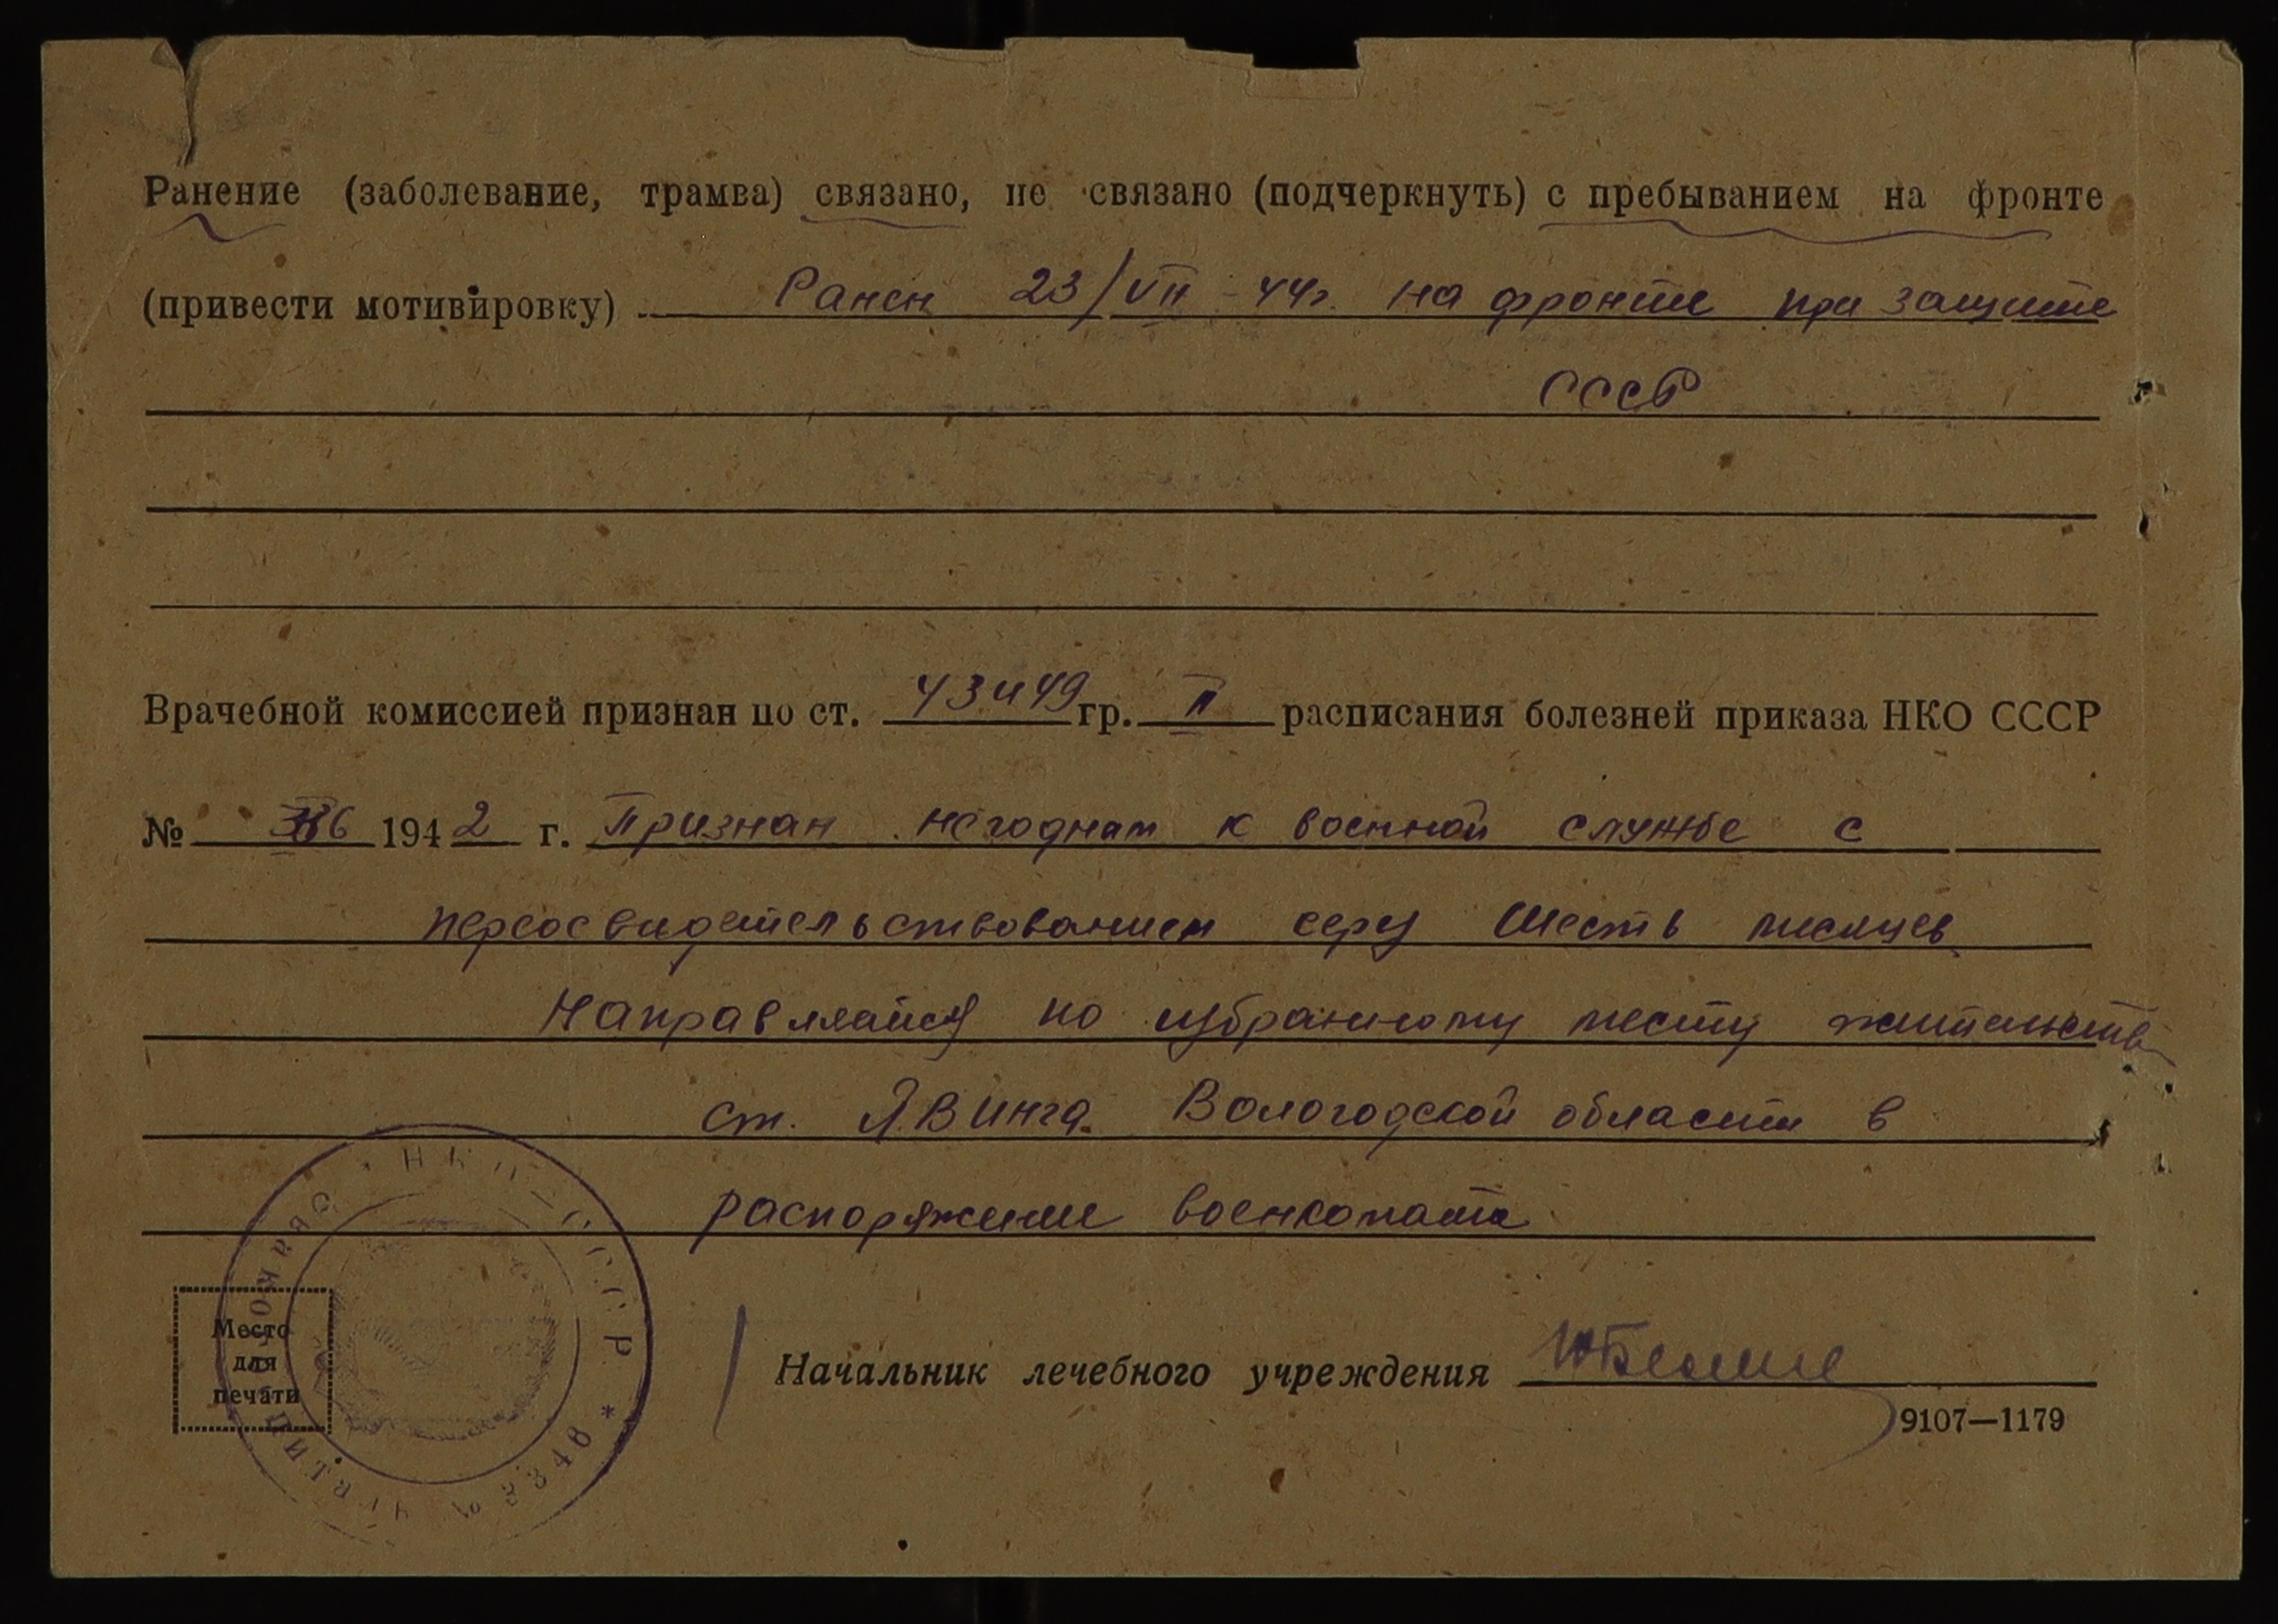 Ранение (заболевание, трамва) связано, не связано (подчеркнуть) с пребыванием на фронте
(привести мотивировку) Ранен 23/VII-44г. на фронте при защите
СССР
Врачебной комиссией признан по ст. 43 и 49 гр. II расписания болезней приказа НКО СССР
№ 336 1942 г. Признан негодным к военной службе с
переосвидетельствованием через шесть месяцев
Направляется по избранному месту жительства
ст. Явинга Вологодской области в
распоряжение военкомата
НКО СССР * 3348
Место
для
печати
Начальник лечебного учреждения
9107—1179